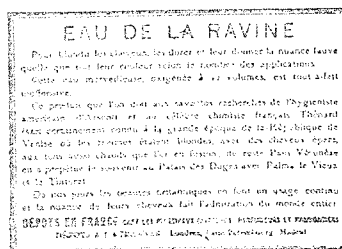 EAU DE LA RAVINE
Pour blondir les cheveux, les dorer et leur donner la nuance fauve
quelle que soit leur couleur selon le nombre des applications.
Cette eau merveilleuse, oxygénée à 12 volumes, est tout-à-fait
inoffensive.
Ce produit que l'on doit aux savantes recherches de l'hygiéniste
américain et au célèbre chimiste français Thénard
était certainement connu à la grande époque de la République de
Venise où les femmes étaient blondes, avec des cheveux épars,
aux tons aussi chauds que l'or en fusion, du reste Paul Véronèse
en a perpétué le souvenir au Palais des Doges avec Palma le Vieux
et le Tintoret.
De nos jours les beautés britanniques en font un usage continu
et la nuance de leurs cheveux fait l'admiration du monde entier.
DÉPOTS EN FRANCE CHEZ LES PARFUMEURS ET PHARMACIENS
DÉPOTS A L'ÉTRANGER Londres, Madrid